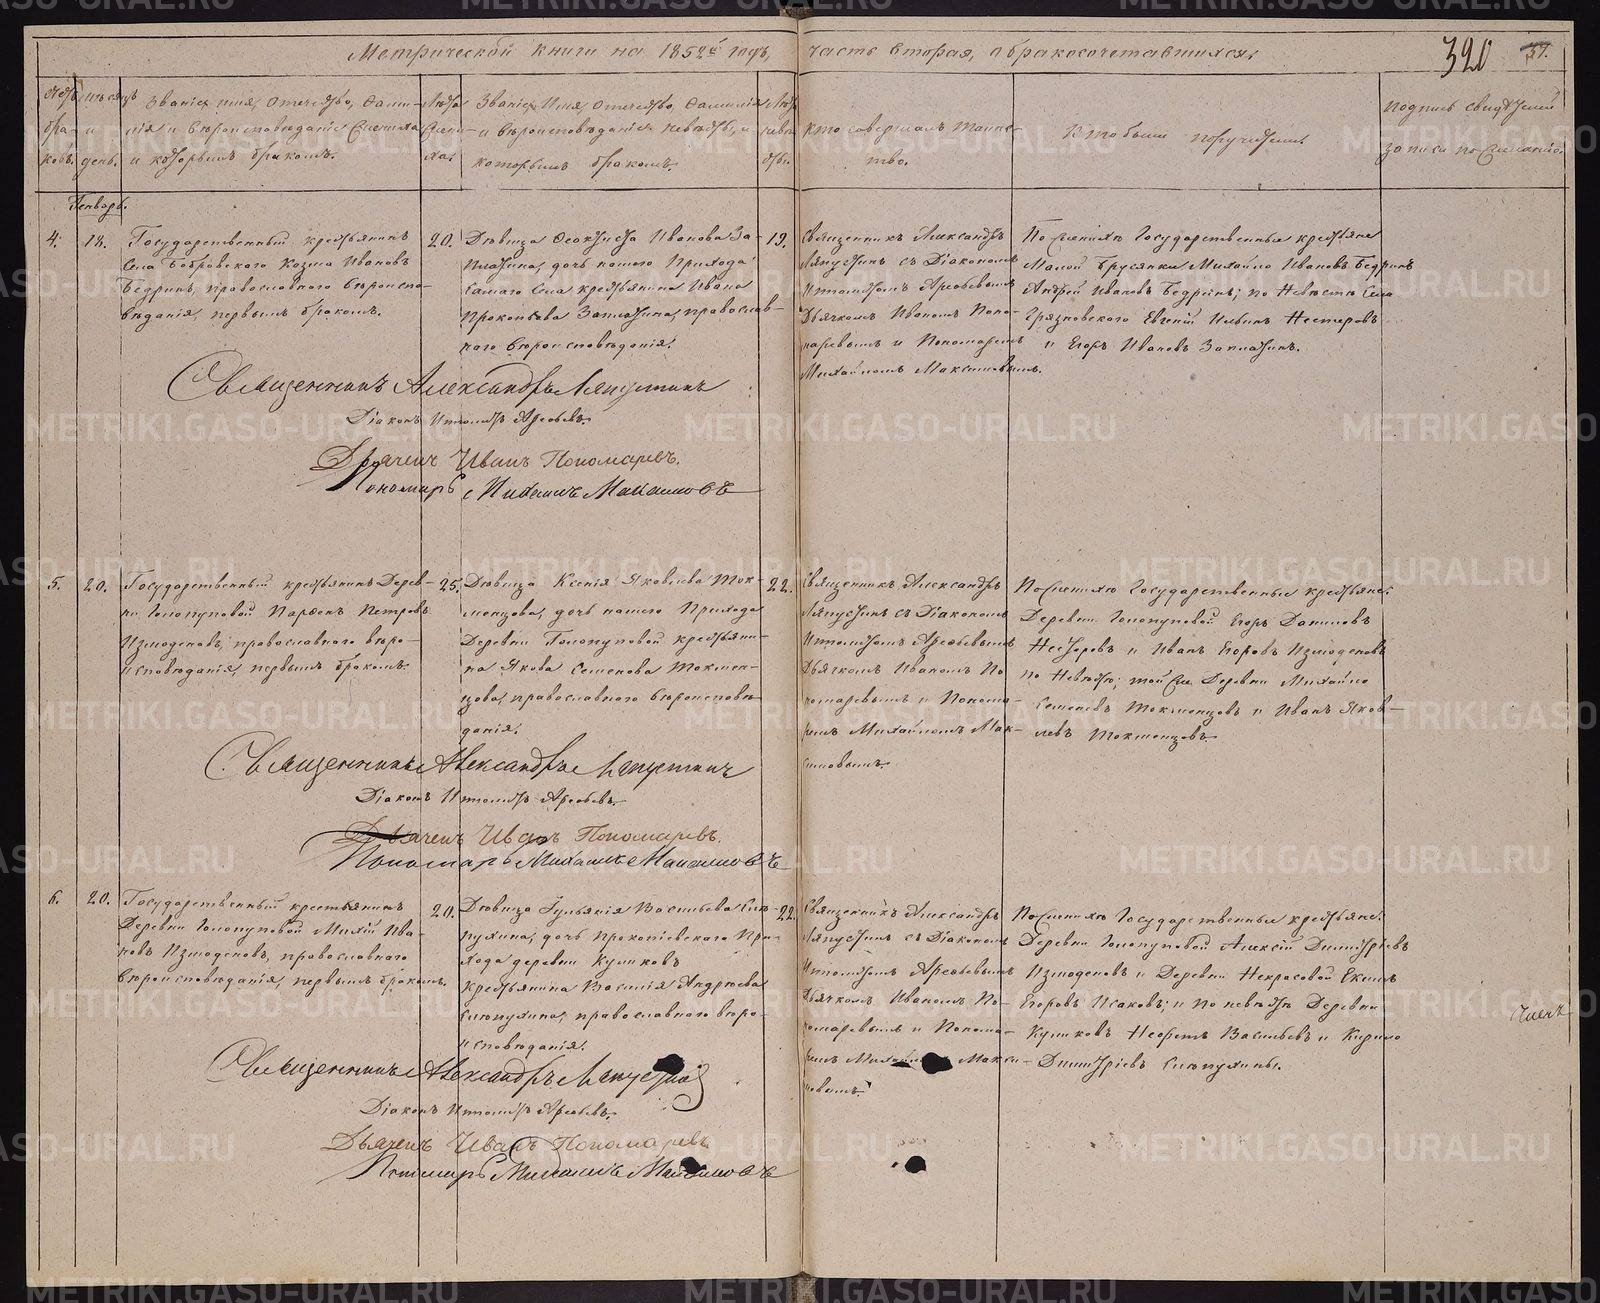 Метрической книги на 1852й годъ, часть вторая, о бракосочетавшихся.
320
37.
Званіе, имя, отчество, фами-
лія и вѣроисповѣданіе жениха
и которымъ бракомъ.
Лѣта
жени-
ха.
Званіе, Имя, отчество, фамилія
и вѣроисповѣданіе невѣсты, и
которымъ бракомъ.
Кто совершалъ таинс-
тво.
Кто были поручители
Подпись свидѣтелей
записи по желанію.
Генварь.
4.
18.
Государственный крестьянинъ
Села Бобровского Козма Ивановъ
Бедринъ, православного вѣроиспо-
вѣданія, первымъ бракомъ.
20.
Дѣвица Феоктиста Иванова За-
платина, дочь нашего Прихода
самаго Села крестьянина Ивана
Прокопьева Заплатина, православ-
наго вѣроисповѣданія.
19.
Священникъ Александръ
Ляпустинъ съ Діакономъ
Ипполитомъ Арефьевымъ
Дьячкомъ Иваномъ Поно-
маревымъ и Пономаремъ
Михайломъ Максимовымъ.
По женихѣ Государственные крестьяне
Малой Брусянки Михайло Ивановъ Бедринъ
Андрей Ивановъ Бедринъ; по Невѣстѣ Села
Грязновского Евгеній Ильинъ Нестеровъ
и Егоръ Ивановъ Заплатинъ.
Священникъ Александръ Ляпустинъ
Діаконъ Ипполитъ Арефьевъ.
Дьячекъ Иванъ Пономаревъ.
Пономарь Михаилъ Максимовъ
5.
20.
Государственный крестьянинъ Дерев-
ни Голопуповой Парфенъ Петровъ
Измоденовъ, православного вѣро-
исповѣданія, первымъ бракомъ.
25.
Дѣвица Ксенія Яковлева Ток-
менцова, дочь нашего Прихода
Деревни Голопуповой крестьяни-
на Якова Семенова Токмен-
цова, православного вѣроисповѣ-
данія.
22.
Священникъ Александръ
Ляпустинъ съ Діакономъ
Ипполитомъ Арефьевымъ
Дьячкомъ Иваномъ По-
номаревымъ и Понома-
ремъ Михайломъ Мак-
симовымъ.
По женихѣ Государственные крестьяне:
Деревни Голопуповой Егоръ Даниловъ
и Иванъ Егоровъ Измоденовъ
по Невѣстѣ; той же Деревни Михайло
Семеновъ Токменцовъ и Иванъ Яков-
левъ Токменцовъ.
Священникъ Александръ Ляпустинъ
Діаконъ Ипполитъ Арефьевъ.
Дьячекъ Иванъ Пономаревъ.
Пономарь Михаилъ Максимовъ
6.
20.
Государственный крестьянинъ
Деревни Голопуповой Ива-
новъ Измоденовъ, православного
вѣроисповѣданія, первымъ бракомъ.
20.
Дѣвица Гульянія Васильева Сню-
пухина, дочь Прокопіевского При-
хода деревни Кушковъ
крестьянина Василія Андреева
православного вѣро-
исповѣданія.
22.
Священникъ Александръ
Ляпустинъ съ Діакономъ
Ипполитомъ Арефьевымъ
Дьячкомъ Иваномъ По-
номаревымъ и Понома-
ремъ Макси-
мовымъ.
По женихѣ Государственные крестьяне:
Деревни Голопуповой Алексѣй Димитріевъ
Измоденовъ и Деревни Некрасовой Екимъ
Егоровъ Исаковъ; и по невѣстѣ Деревни
Кушковъ Васильевъ и Кирило
Димитріевъ
Священникъ Александръ Ляпустинъ
Діаконъ Ипполитъ Арефьевъ.
Дьячекъ Иванъ Пономаревъ.
Пономарь Михаилъ Максимовъ
METRIKI.GASO-URAL.RU